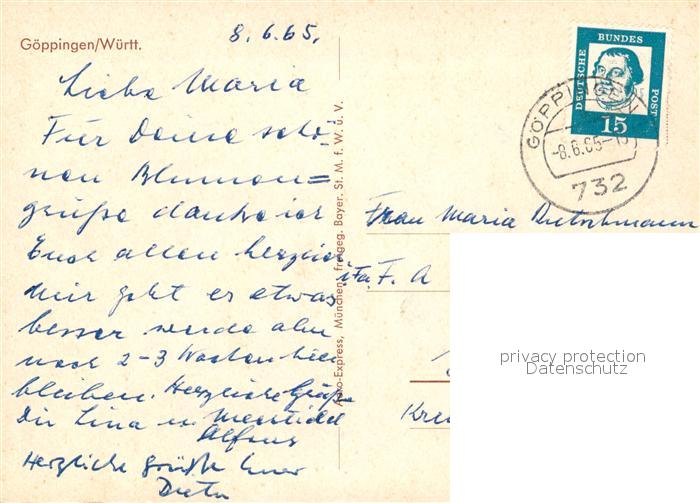 Göppingen/Württ.
8.6.65.
Liebe Maria
Für Deine schö-
nen Blumen=
grüße danke ich
Euch allen herzlich
Mir geht es etwas
besser werde aber
noch 2-3 Wochen hier
bleiben. Herzliche Grüße
Dir Lina u.
Alfons
Herzliche Grüße Euer
Dieter
Auto-Express, München, freigeg. Bayer. St. M. f. W. u. V.
DEUTSCHE BUNDES POST
15
GÖPPINGEN
-8.6.65-
732
Frau Maria Dietschmann
i/Fa. F. A
Kre
privacy protection
Datenschutz